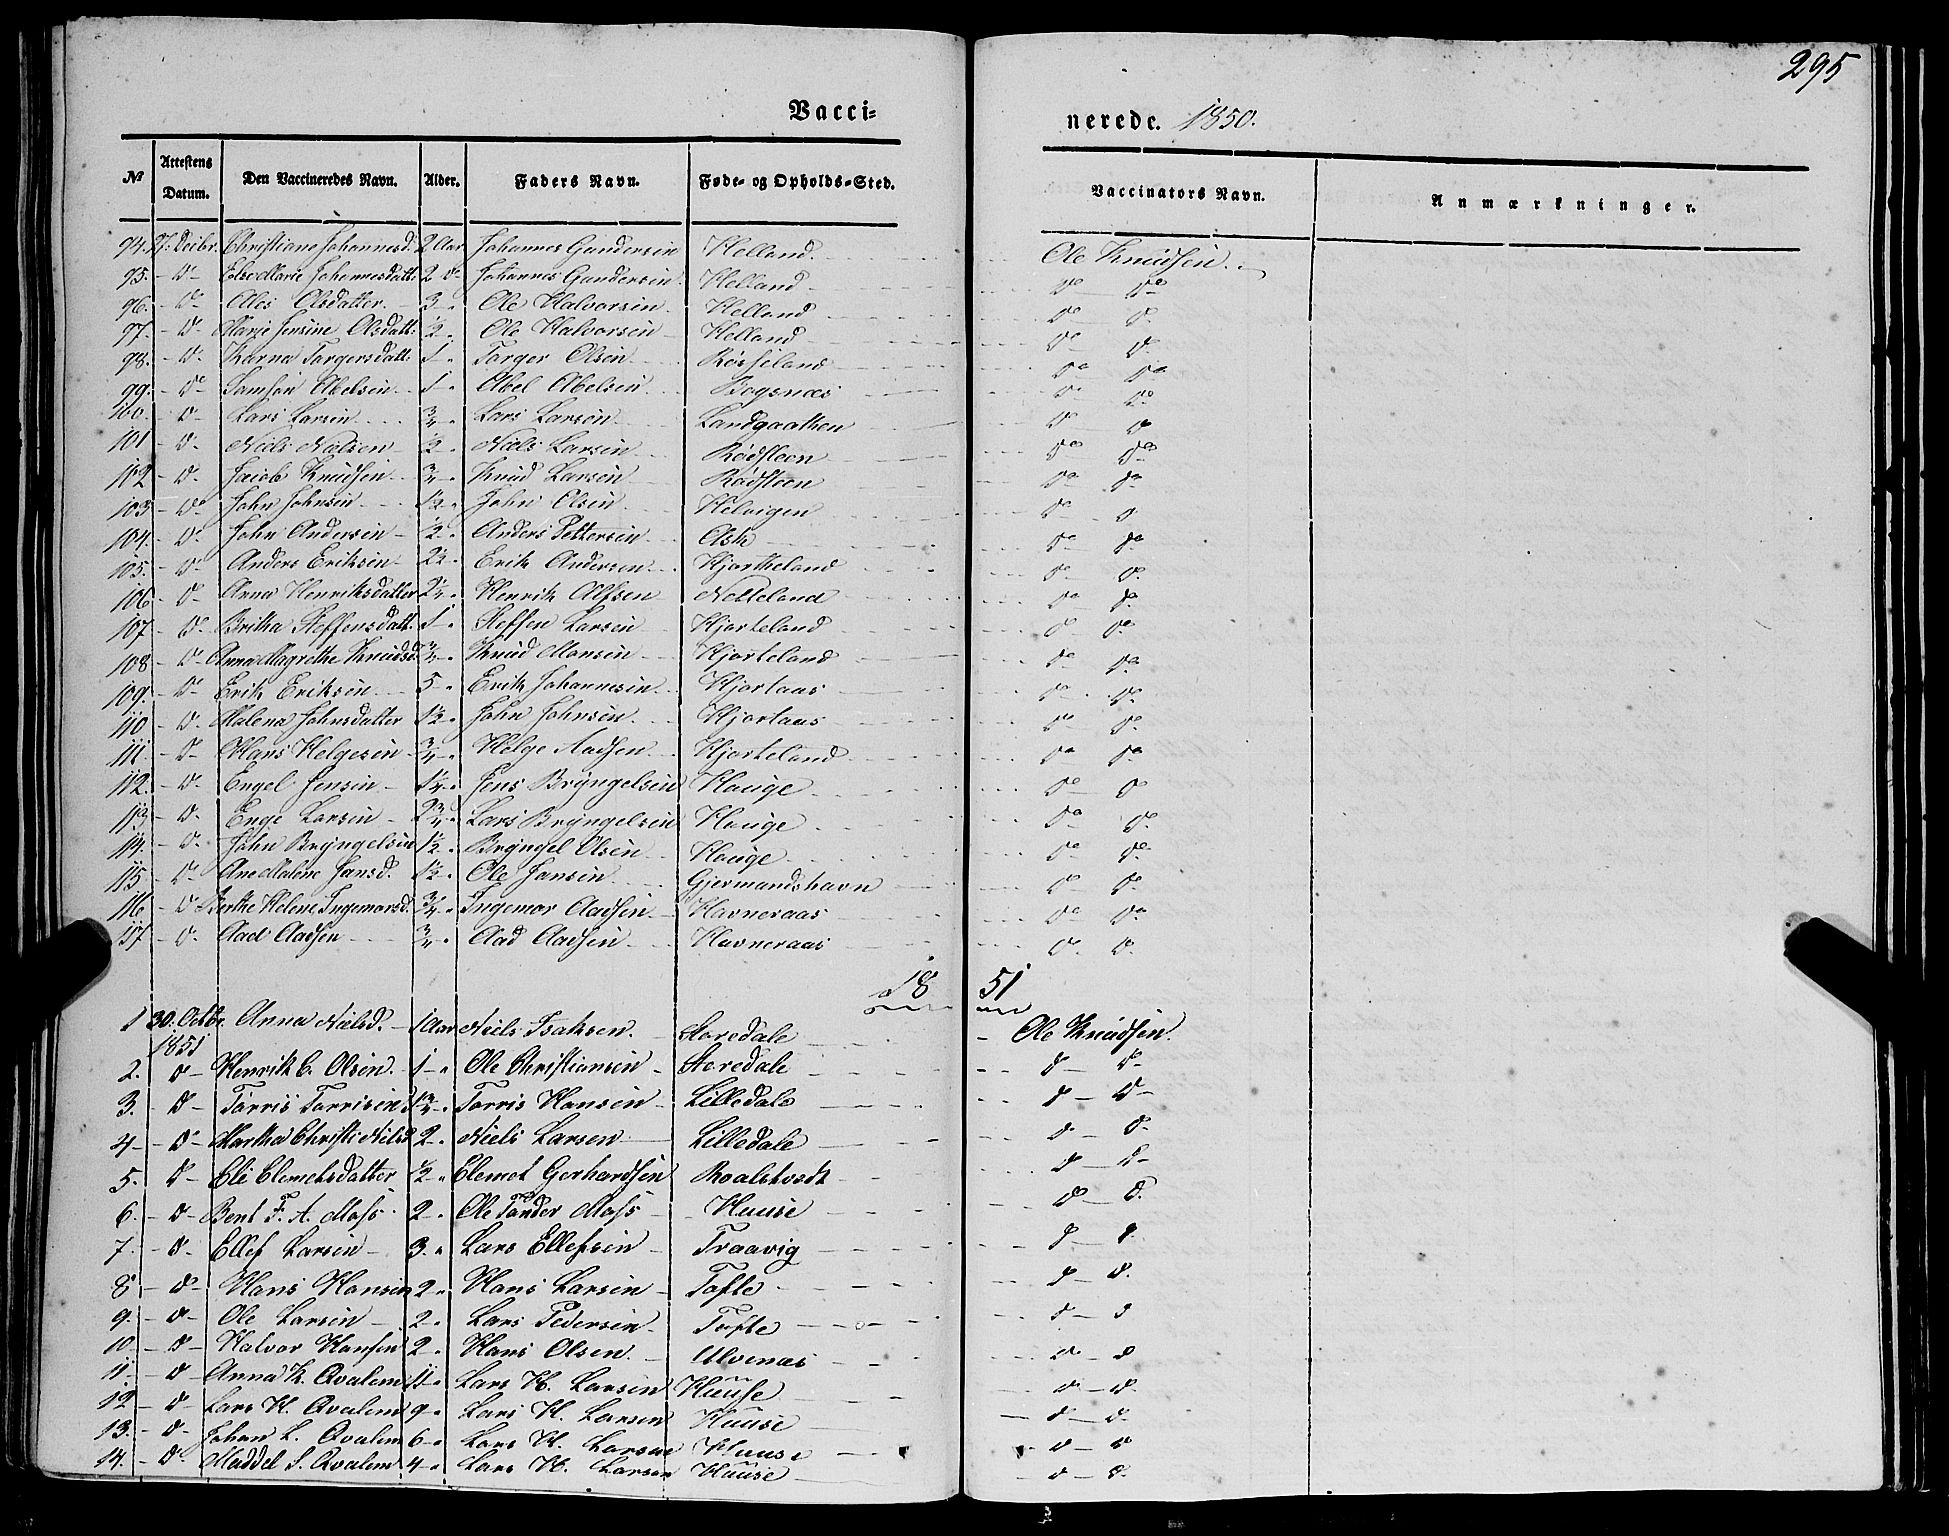 295
Vacci= nerede. 1850.
№ Attestens Datum. Den Vaccineredes Navn. Alder. Faders Navn. Føde- og Opholds-Sted. Vaccinators Navn. Anmærkninger.
94. 27. Decbr. Christiane Johannesd. 2 Aar Johannes Gundersen Helland. Ole Knudsen.
95. - do - Else Marie Johannesdatt. 2 do Johannes Gundersen Helland do do
96. - do - Olsdatter 3 " Ole Halvorsen Helland do do
97. - do - Marie Jensine Olsdatt. 1/2 " Ole Halvorsen Helland do do
98. - do - Karna Torgersdatt. 1 " Torger Olsen Røsseland do do
99. - do - Samson Abelsen 1 " Abel Abelsen Bogsnæs do do
100. - do - Lars Larsen 3/4 " Lars Larsen do do
101 - do - Niels Nielsen 1/2 " Niels Larsen Rødsteen do do
102 - do - Jacob Knudsen 3/4 " Knud Larsen Rødsteen do do
103 - do John Johnsen 1 1/2 " John Olsen Helvigen do do
104. - do - John Andersen 1/2 " Anders Pettersen Ask do do
105. - do - Anders Eriksen 2 1/2 " Erik Andersen Hjortheland do do
106 - do Anna Henriksdatter 2 1/4 " Henrik Alfsen Netteland do do
107 - do - Britha Steffensdatt. 1 " Steffen Larsen Hjorteland do do
108 - do - Anna Magrethe Knudsd. 3/4 " Knud Monsen Hjorteland do do
109. - do - Erik Eriksen 5 " Erik Johannesen Hjortaas do do
110 - do - Malena Johnsdatter 1 1/2 " John Johnsen Hjortaas do do
111. - do - Hans Helgesen 3/4 " Helge Aadsen Hjorteland do do
112. - do - Engel Jensen 1 1/4 " Jens Bryngelsen Hauge do do
113 - do - Enge Larsen 2 3/4 " Lars Bryngelsen Hauge do do
114. - do - John Bryngelsen 1 1/2 " Bryngel Olsen Hauge do do
115 - do - Ane Malene Jansd. 1 1/2 " Ole Jansen Gjermandshavn do do
116 - do Berthe Helene Ingemarsd. 3/4 " Ingemar Aadsen Havneraas do do
117 - do - Aad Aadsen 3/4 " Aad Aadsen Havneraas do do
18 51
1 30. Octbr. 1851 Anna Nielsd. 1 Aar Niels Isaksen. Storedale Ole Knudsen.
2. do - Henrik C. Olsen 1 " Ole Christiansen Storedale do - do
3. - do - Torris Torrisen 1 3/4 " Torris Hansen Lilledale do - do
4 - do - Martha Christi Nielsd 2 " Niels Larsen Lilledale do - do
5. - do - Eli Clemetsdatter 1/2 " Clemet Gerhardsen Roaldstvedt do - do
6. - do - Bent F. A. Moss 2 " Ole Tander Moss Huuse do - do
7. - do - Ellef Larsen 3 " Lars Ellefsen Traavig do - do
8 - do - Hans Hansen 2 " Hans Larsen Tofte do - do
9. - do - Ole Larsen 2 " Lars Pedersen Tofte do - do
10. - do - Halvor Hansen 2 " Hans Olsen Ulvenæs do - do
11. - do Anna K. Qvalem 11 " Lars H. Larsen Huuse do - do
12 - do - Lars H. Qvalem 9 " Lars H. Larsen Huuse do - do
13. - do - Johan L. Qvalem 6 " Lars H. Larsen Huuse do - do
14. - do Maddel S. Qvalem 4 " Lars H. Larsen Huuse do - do